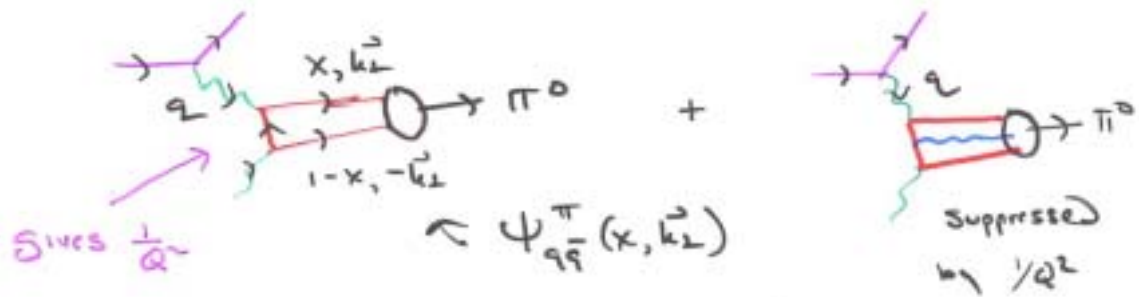 x, k⃗⊥
q
π⁰
+
q
π⁰
1-x, -k⃗⊥
Gives 1/Q²
ψ^π_{qq̄}(x, k⃗⊥)
suppressed
by 1/Q²